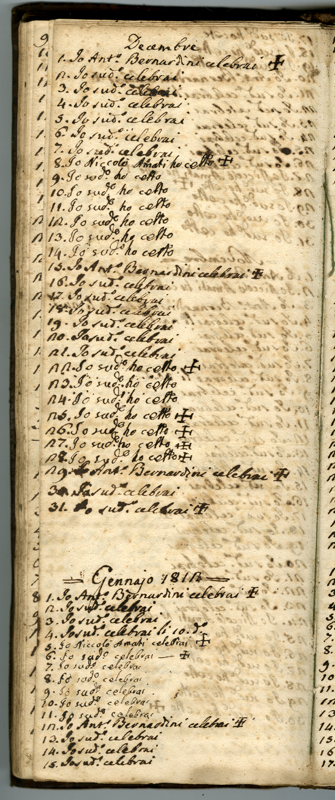 Decembre
1. Io Ant.° Bernardini celebrai ✠
2. Io sud.° celebrai
3. Io sud.° celebrai
4. Io sud.° celebrai
5. Io sud.° celebrai
6. Io sud.° celebrai
7. Io sud.° celebrai
8. Io Niccolò Amati ho cetto ✠
9. Io sud.° ho cetto
10. Io sud.° ho cetto
11. Io sud.° ho cetto
12. Io sud.° ho cetto
13. Io sud.° ho cetto
14. Io sud.° ho cetto
15. Io Ant.° Bernardini celebrai ✠
16. Io sud.° celebrai
17. Io sud.° celebrai
18. Io sud.° celebrai
19. Io sud.° celebrai
20. Io sud.° celebrai
21. Io sud.° celebrai
22. Io sud.° ho cetto ✠
23. Io sud.° ho cetto
24. Io sud.° ho cetto
25. Io sud.° ho cetto ✠
26. Io sud.° ho cetto ✠
27. Io sud.° ho cetto ✠
28. Io sud.° ho cetto ✠
29. Io Ant.° Bernardini celebrai ✠
30. Io sud.° celebrai
31. Io sud.° celebrai ✠
= Gennajo 1812 =
1. Io Ant.° Bernardini celebrai ✠
2. Io sud.° celebrai
3. Io sud.° celebrai
4. Io sud.° celebrai li 10. d.°
5. Io Niccolò Amati celebrai ✠
6. Io sud.° celebrai — ✠
7. Io sud.° celebrai
8. Io sud.° celebrai
9. Io sud.° celebrai
10. Io sud.° celebrai
11. Io sud.° celebrai
12. Io Ant.° Bernardini celebrai ✠
13. Io sud.° celebrai
14. Io sud.° celebrai
15. Io sud.° celebrai